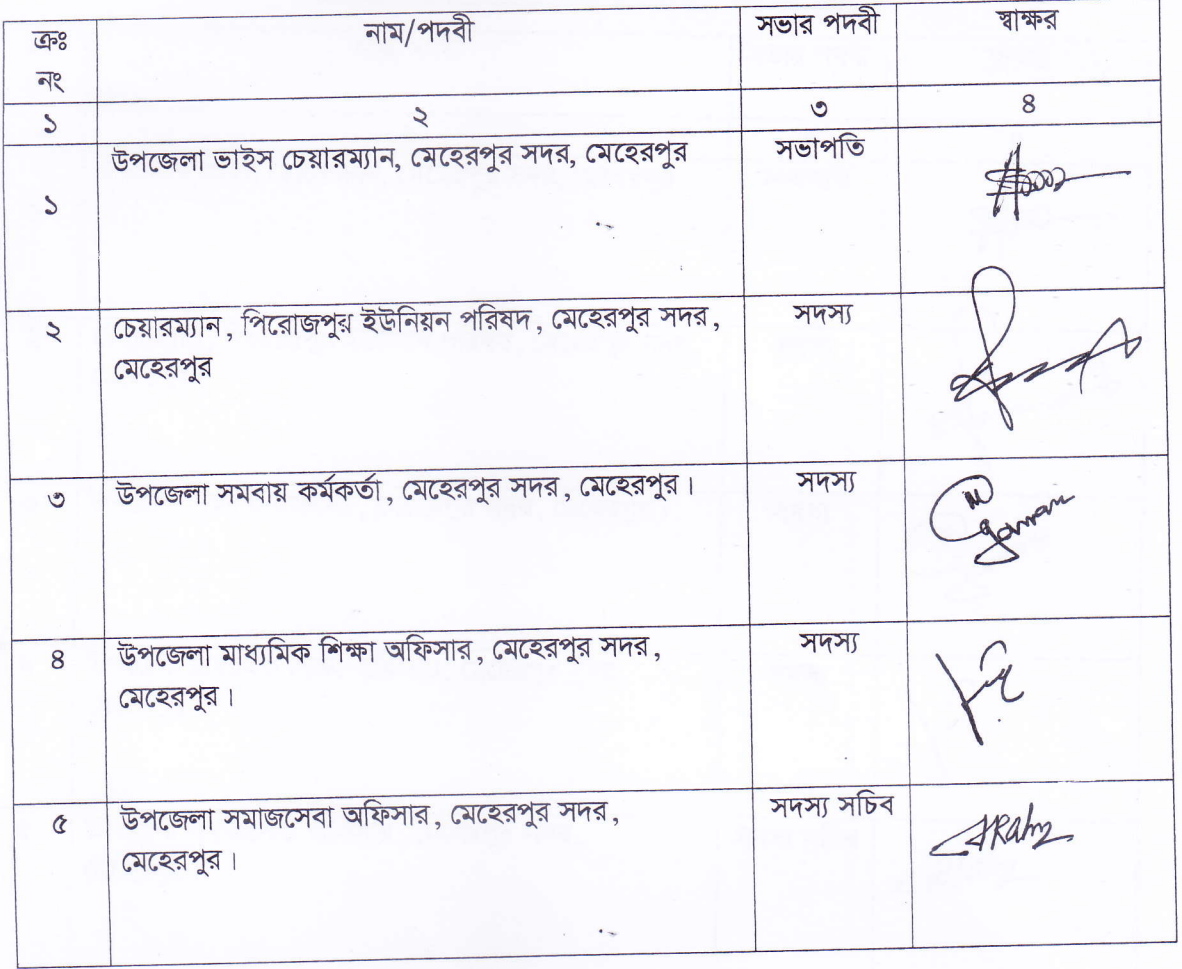 ক্রঃ নাম/পদবী সভার পদবী স্বাক্ষর
নং
১ ২ ৩ ৪
১ উপজেলা ভাইস চেয়ারম্যান, মেহেরপুর সদর, মেহেরপুর সভাপতি
২ চেয়ারম্যান, পিরোজপুর ইউনিয়ন পরিষদ, মেহেরপুর সদর, সদস্য
মেহেরপুর
৩ উপজেলা সমবায় কর্মকর্তা, মেহেরপুর সদর, মেহেরপুর। সদস্য
৪ উপজেলা মাধ্যমিক শিক্ষা অফিসার, মেহেরপুর সদর, সদস্য
মেহেরপুর।
৫ উপজেলা সমাজসেবা অফিসার, মেহেরপুর সদর, সদস্য সচিব
মেহেরপুর।